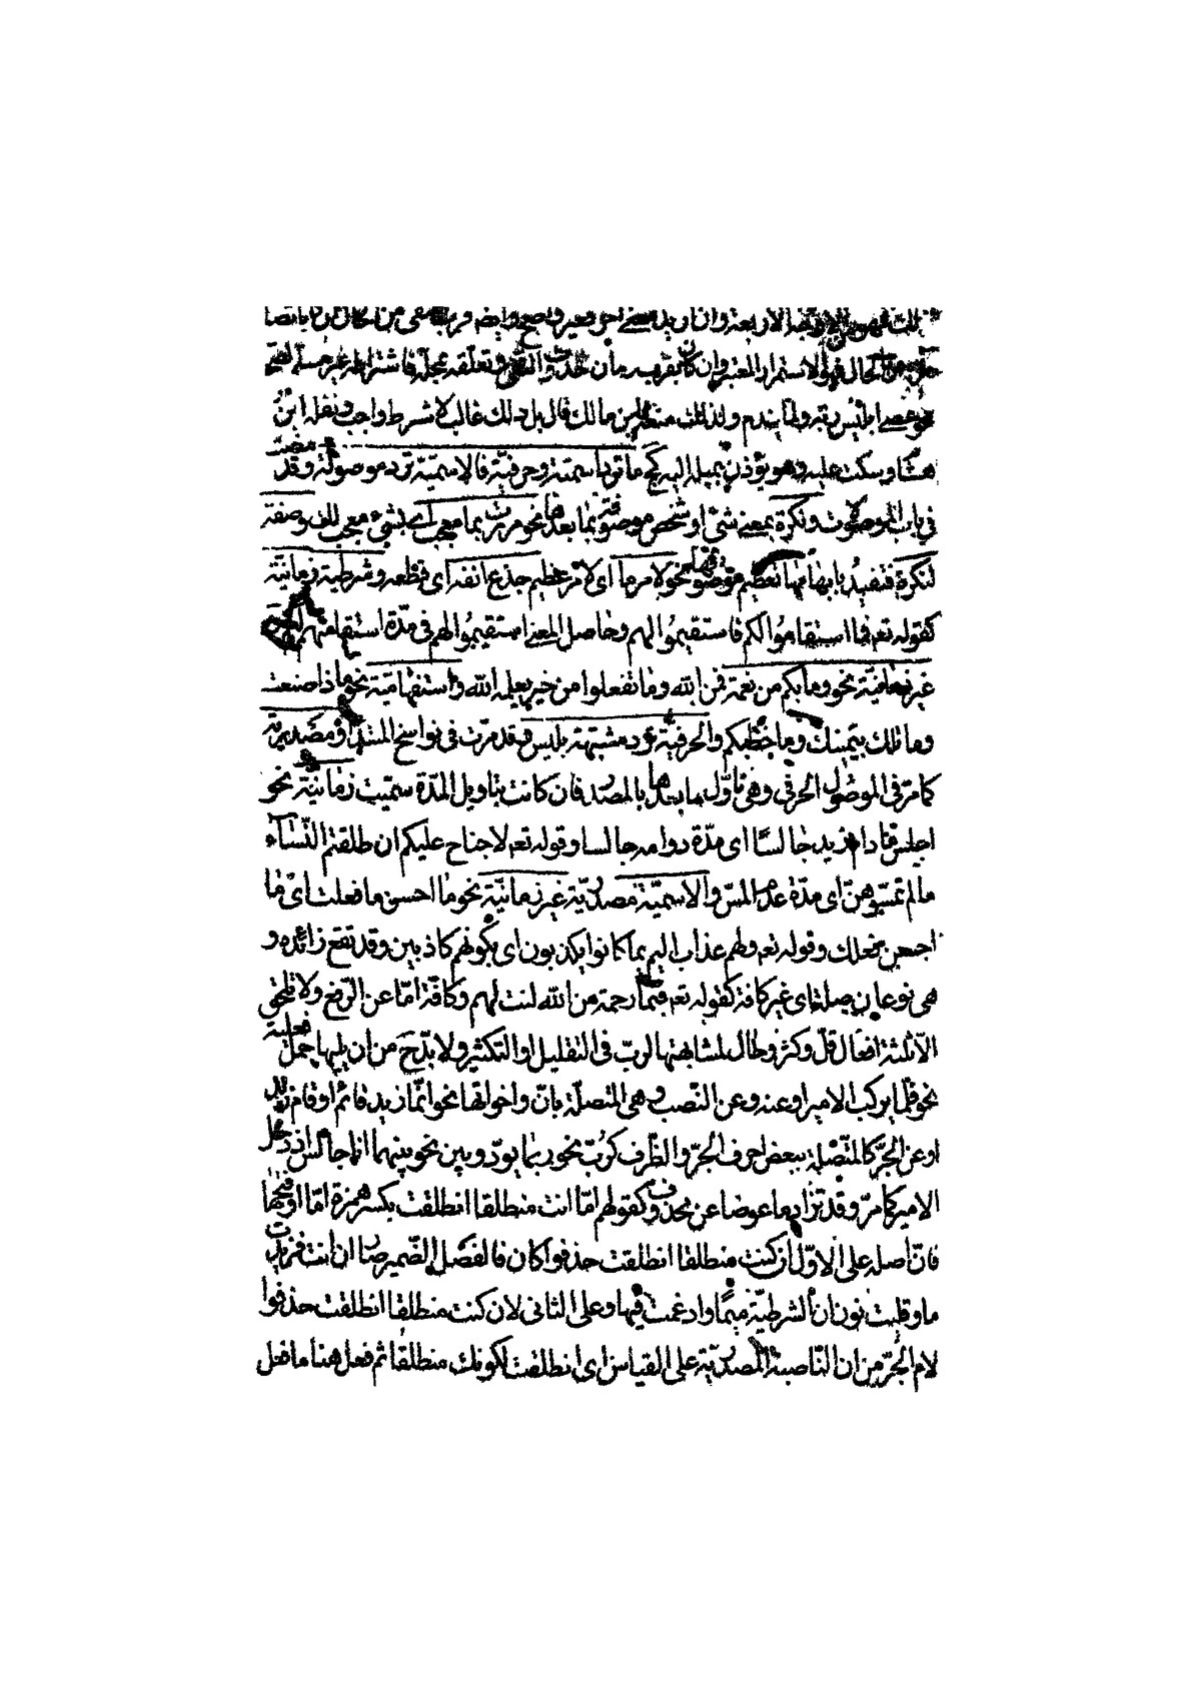 الاربعة وان اريد
الحال فهو الاستمرار المعتبر وان كان يقربه مان وتعلقه بمحله فاشتراطه غير مسلم
نحو عصى ابليس ربه ولما يندم ولذلك ابن مالك قال بل ذلك غالب لا شرط واجب ونقله ابن
هشام وسكت عليه وهو يؤذن بميله اليه كج ما تؤد اسمية وحرفية فالاسمية ترد موصولة وقد مضت
في باب الموصولات ونكرة بمعنى شئ او شخص موصوفة بما بعدها نحو مررت بما معجب لك اى بشئ معجب لك وصفة
لنكرة فتفيد بابهامها تعظيم موصوفها نحو لامر ما اى لامر عظيم جدع انفه اى قطعه وشرطية زمانية
كقوله تعه فما استقاموا لكم فاستقيموا لهم وحاصل المعنى استقيموا لهم في مدة استقامتهم لكم
غير زمانية نحو وما بكم من نعمة فمن الله وما تفعلوا من خير يعلمه الله واستفهامية نحو ماذا صنعت
وما تلك بيمينك وما خطبكم والحرفية تؤد مشبهة بليس وقد مرت في نواسخ المبتدا ومصدرية
كما مر في الموصول الحرفي وهي تأول ما بعدها بالمصدر فان كانت بتاويل المدة سميت زمانية نحو
اجلس ما دام زيد جالسا اى مدة دوامه جالسا وقوله تعه لا جناح عليكم ان طلقتم النساء
ما لم تمسوهن اى مدة عدم المس والاسمية مصدرية غير زمانية نحو ما احسن ما فعلت اى ما
احسن فعلك وقوله تعه ولهم عذاب اليم بما كانوا يكذبون اى بكونهم كاذبين وقد تقع زائده و
هى نوعان صلة اى غير كافة كقوله تعه فبما رحمة من الله لنت لهم وكافة اما عن الرفع ولا تلحق
الا ثلثة افعال قل وكثر وطال لمشابهتها لرب في التقليل او التكثير ولا بد ح من ان يليها جملة فعلية
نحو قلما يركب الامير او عنه وعن النصب وهي المتصلة بان واخواتها نحو انما زيد قائم او قام زيد
او عن الجر كالمتصلة ببعض احرف الجر والظرف كرب نحو ربما يود وبين نحو بينهما انا جالس اذ دخل
الامير كما مر وقد تزاد ما عوضا عن محذوف كقولهم اما انت منطلقا انطلقت بكسر همزة اما او فتحها
فان اصله على الاول ان كنت منطلقا انطلقت حذفوا كان فانفصل الضمير صار ان انت فزيدت
ما وقلبت نون ان الشرطية ميما وادغمت فيها وعلى الثاني لان كنت منطلقا انطلقت حذفوا
لام الجر من ان الناصبة المصدرية على القياس اى انطلقت لكونك منطلقا ثم فعل هنا ما فعل